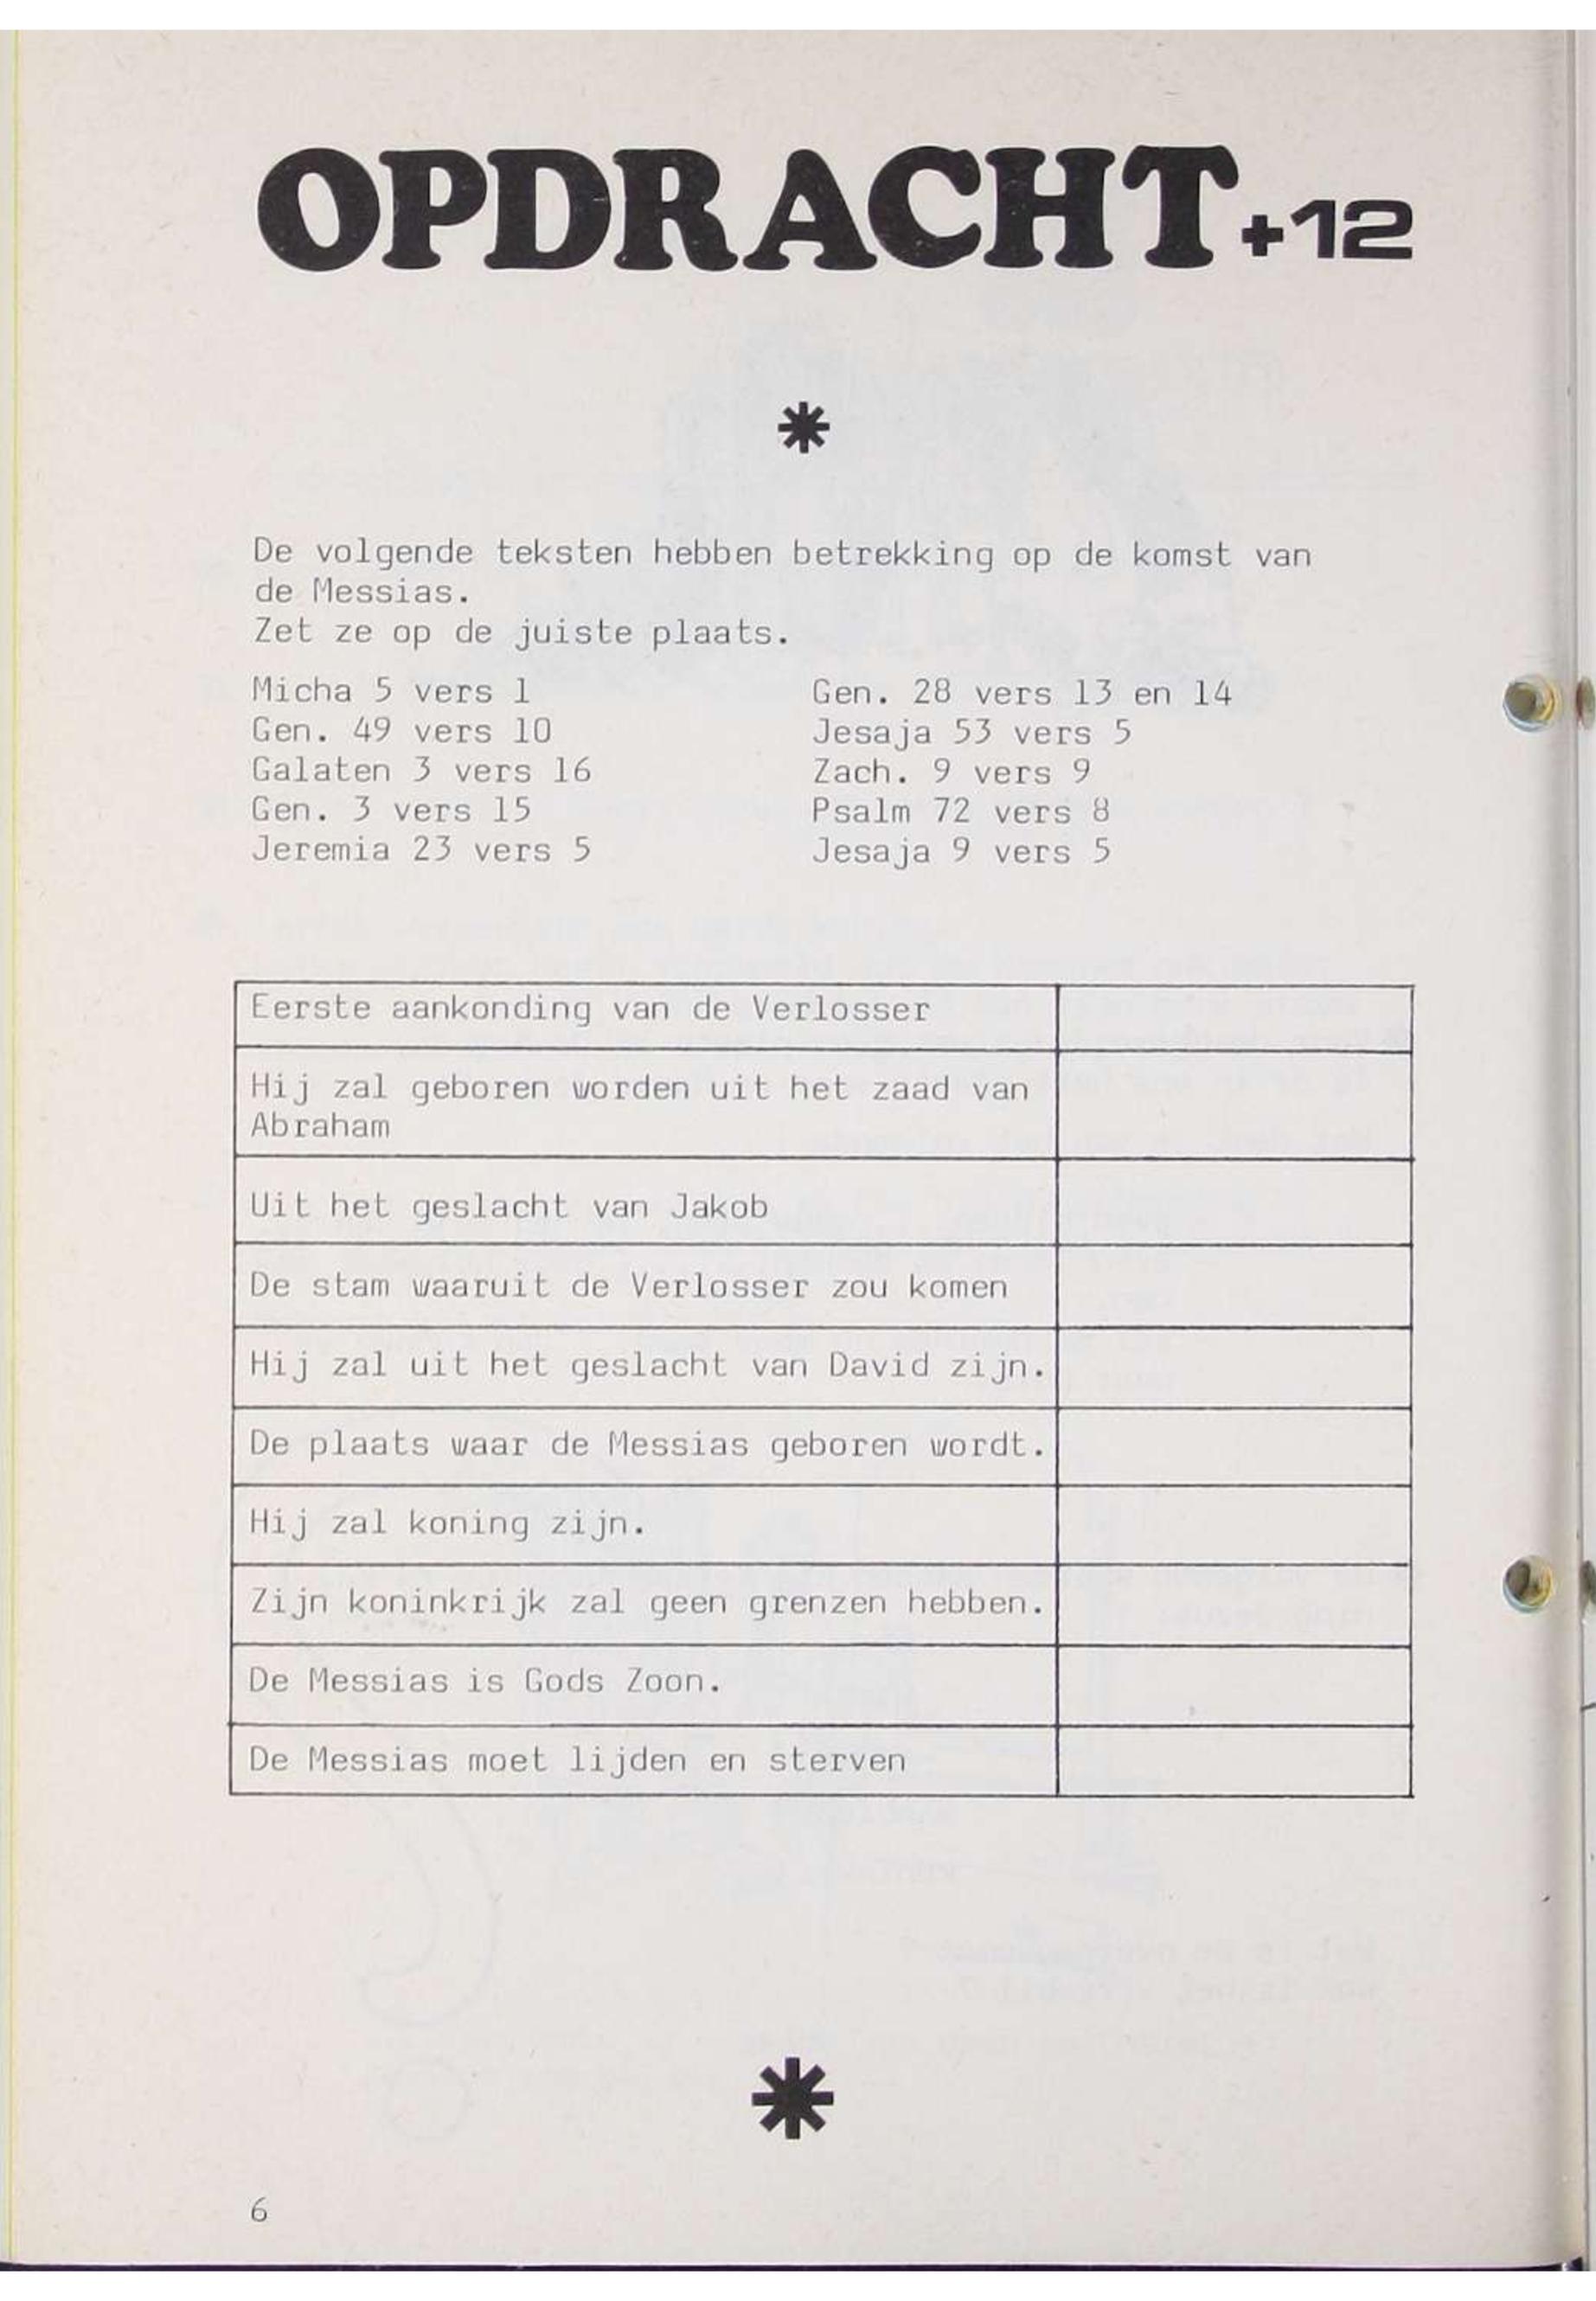 OPDRACHT +12
*
De volgende teksten hebben betrekking op de komst van
de Messias.
Zet ze op de juiste plaats.
Micha 5 vers 1
Gen. 49 vers 10
Galaten 3 vers 16
Gen. 3 vers 15
Jeremia 23 vers 5
Gen. 28 vers 13 en 14
Jesaja 53 vers 5
Zach. 9 vers 9
Psalm 72 vers 8
Jesaja 9 vers 5
Eerste aankonding van de Verlosser
Hij zal geboren worden uit het zaad van
Abraham
Uit het geslacht van Jakob
De stam waaruit de Verlosser zou komen
Hij zal uit het geslacht van David zijn.
De plaats waar de Messias geboren wordt.
Hij zal koning zijn.
Zijn koninkrijk zal geen grenzen hebben.
De Messias is Gods Zoon.
De Messias moet lijden en sterven
*
6